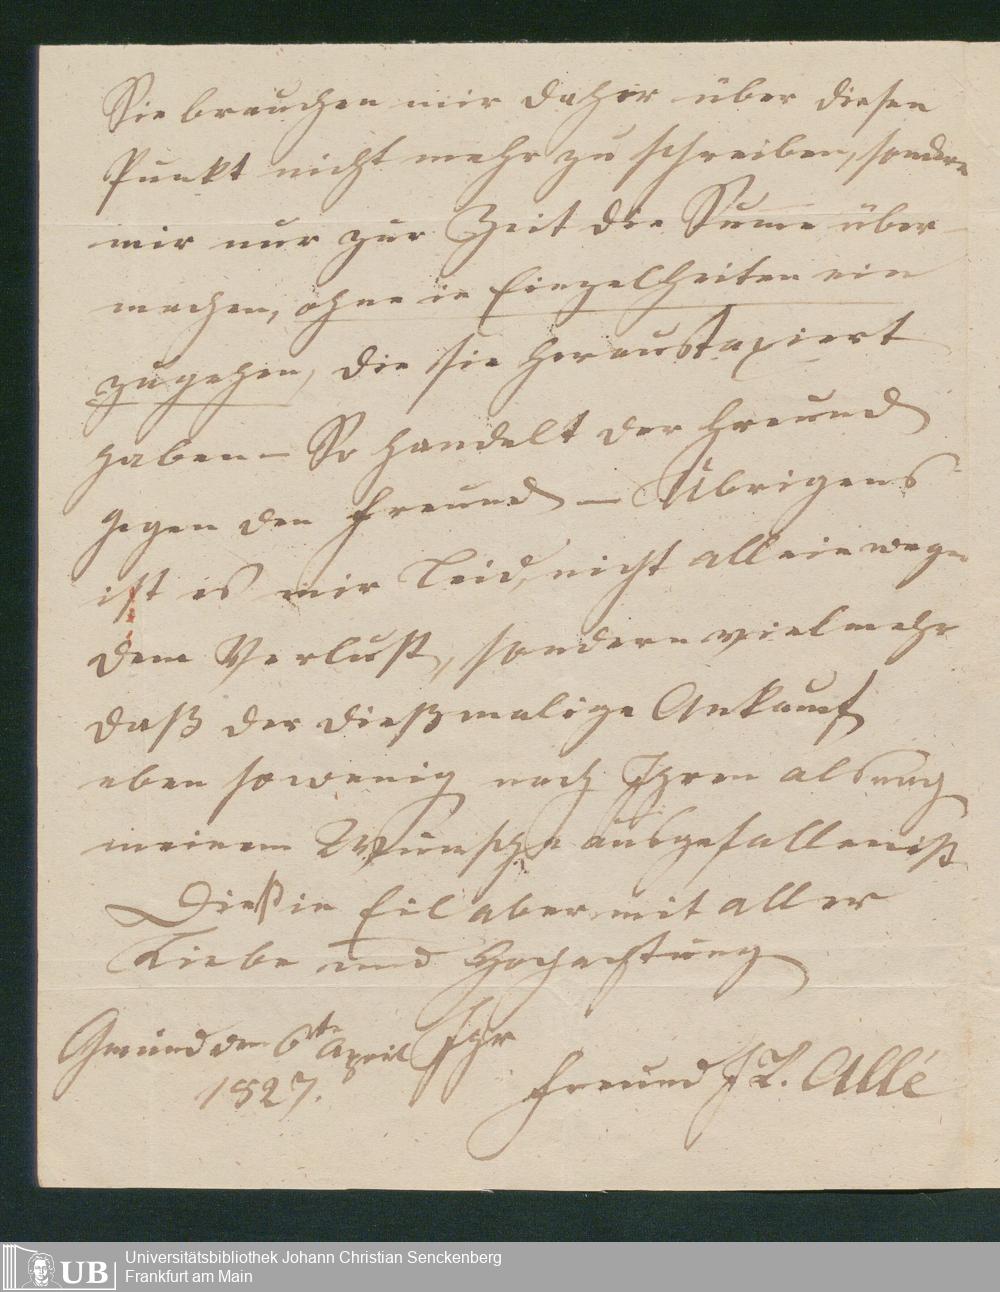 Sie brauchen mir daher über diesen
Punkt nicht mehr zu schreiben, sondern
mir nur zur Zeit die Sume über-
machen, ohne in Einzelheiten ein
zugehen, die sie heraustaxiert
haben – So handelt der Freund
gegen den Freund – Übrigens
ist es mir Leid, nicht allein wegen
dem Verlust, sondern vielmehr
daß der dießmalige Ankauf
eben so wenig nach Ihrem als nach
meinem Wunsche ausgefallen ist
Dieß in Eil aber mit aller
Liebe und Hochachtung
Gmünd den 6te April Ihr
1827. Freund J L. Allé
UB
Universitätsbibliothek Johann Christian Senckenberg
Frankfurt am Main